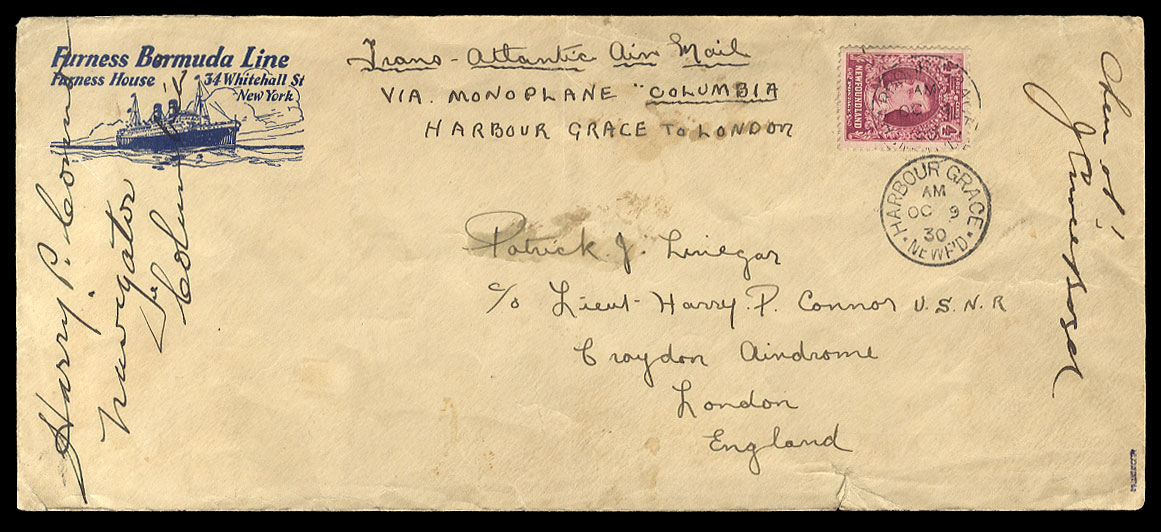 Furness Bermuda Line
Furness House 34 Whitehall St
New York
Trans-Atlantic Air Mail
VIA. MONOPLANE "COLUMBIA
HARBOUR GRACE TO LONDON
NEWFOUNDLAND
HARBOUR GRACE
AM
OC 9
30
NEWF'D
Patrick. J. Linegar
c/o Lieut- Harry. P. Connor U.S.N.R
Croydon Airdrome
London
England
Harry. P. Connor
Navigator
Columbia